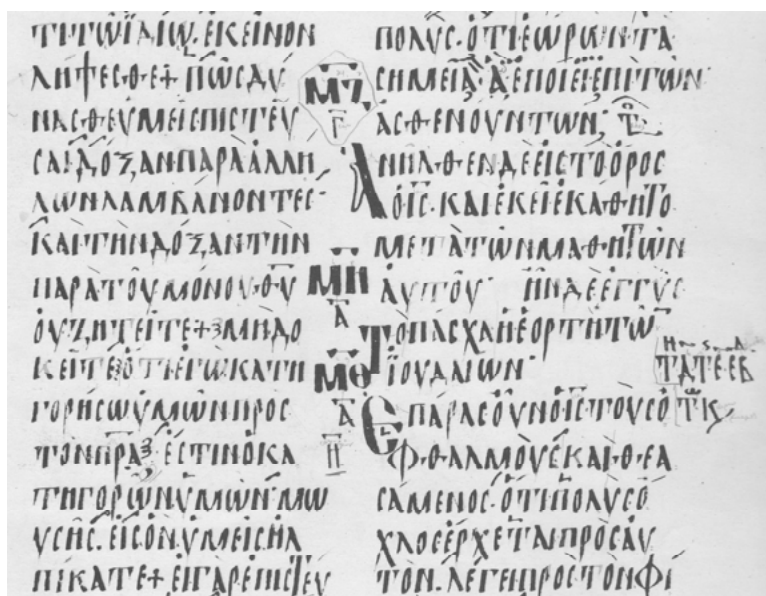 ΤΙΤΩΪΔΙΩ. ΕΚΕΙΝΟΝ
ΛΗΨΕϹΘΕ+ ΠΩϹΔΥ
ΝΑϹΘΕΥΜΕΙϹΠΙϹΤΕΥ
ϹΑΙ ΔΟΞΑΝΠΑΡΑΑΛΛΗ
ΛΩΝΛΑΜΒΑΝΟΝΤΕϹ·
ΚΑΙΤΗΝΔΟΞΑΝΤΗΝ
ΠΑΡΑΤΟΥΜΟΝΟΥ·Θ̅Υ̅
ΟΥΖΗΤΕΙΤΕ+ ΜΗΔΟ
ΚΕΙΤΕ ΟΤΙΕΓΩΚΑΤΗ
ΓΟΡΗϹΩΥΜΩΝΠΡΟϹ
ΤΟΝΠ̅Ρ̅Α̅ ΕϹΤΙΝΟΚΑ
ΤΗΓΟΡΩΝΥΜΩΝ·ΜΩ
ΥϹΗϹ. ΕΙϹΟΝΥΜΕΙϹΗΛ
ΠΙΚΑΤΕ+ ΕΙΓΑΡΕΠΙϹΤΕΥ
Μ̅Ζ̅
Γ̅
Μ̅Η̅
Α̅
Μ̅Θ̅
Α̅
Η̅
ΠΟΛΥϹ· ΟΤΙΕΩΡΩΝΤΑ
ϹΗΜΕΙΑ ΑΕΠΟΙΕΙΕΠΙΤΩΝ
ΑϹΘΕΝΟΥΝΤΩΝ·
ΑΝΗΛΘΕΝΔΕΕΙϹΤΟΟΡΟϹ
ΟΙ̅Ϲ̅· ΚΑΙΕΚΕΙΕΚΑΘΗΤΟ
ΜΕΤΑΤΩΝΜΑΘΗΤΩΝ
ΑΥΤΟΥ· ΗΝΔΕΕΓΓΥϹ
ΤΟΠΑϹΧΑΗΕΟΡΤΗΤΩ̅
ΪΟΥΔΑΙΩΝ·
ΕΠΑΡΑϹΟΥΝΟΙ̅Ϲ̅ΤΟΥϹΟ
ΦΘΑΛΜΟΥϹΚΑΙΘΕΑ
ϹΑΜΕΝΟϹ·ΟΤΙΠΟΛΥϹΟ
ΧΛΟϹΕΡΧΕΤΑΙΠΡΟϹΑΥ
ΤΟΝ. ΛΕΓΕΙΠΡΟϹΤΟΝΦΙ